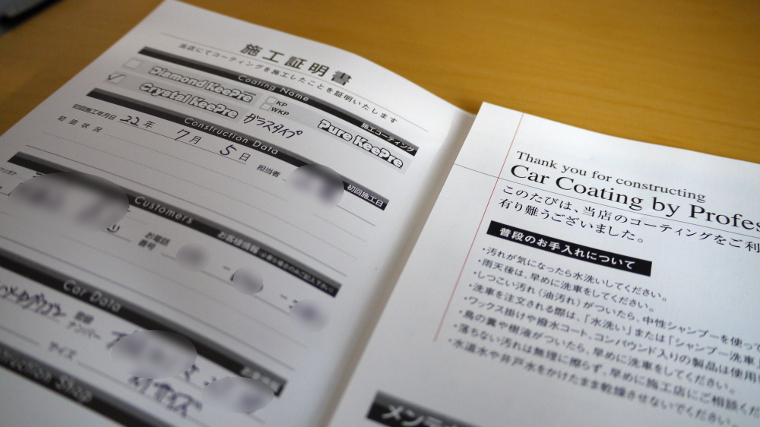 施工証明書
当店にてコーティングを施工したことを証明いたします
Coating Name
施工コーティング
Diamond KeePre
Crystal KeePre
KP
WKP
Pure KeePre
ガラスタイプ
Construction Data
初回施工日
初回施工年月日 22年 7月 5日
担当者
Customers
お客様情報
お電話
番号
Car Data
お車情報
登録
ナンバー
サイズ
Construction Shop
Thank you for constructing
Car Coating by Profes
このたびは、当店のコーティングをご利
有り難うございました。
普段のお手入れについて
・汚れが気になったら水洗いしてください。
・雨天後は、早めに洗車をしてください。
・しつこい汚れ（油汚れ）がついたら、中性シャンプーを使って
・洗車を注文される際は、「水洗い」または「シャンプー洗車」
・ワックス掛けや撥水コート、コンパウンド入りの製品は使用
・鳥の糞や樹液がついたら、早めに洗車をしてください。
・落ちない汚れは無理に擦らず、早めに施工店にご相談くだ
・水道水や井戸水をかけたまま乾燥させないでください。
メンテ